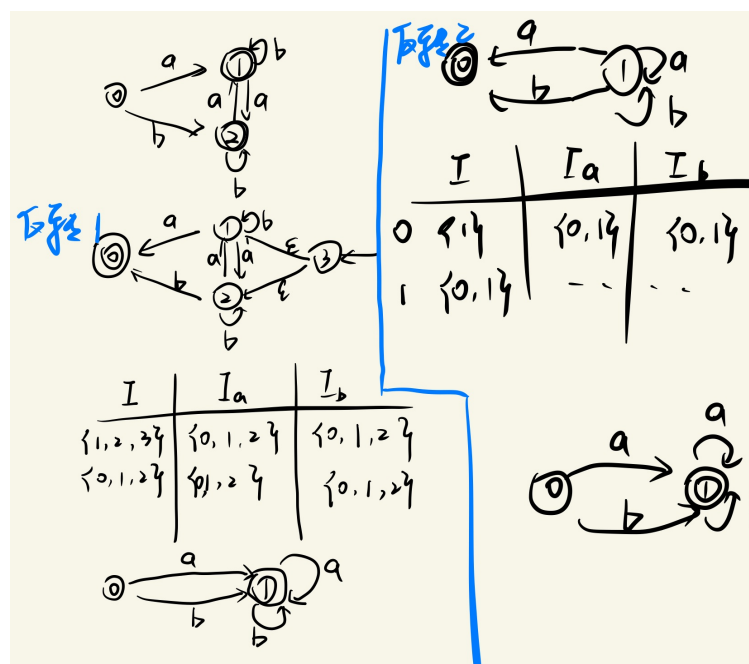 a
① b
0 a a
b ②
b
反转1
a ① b
0 a a ε 3
b ② ε
b
I Ia Ib
{1,2,3} {0,1,2} {0,1,2}
{0,1,2} {0,1,2} {0,1,2}
a
0 ① a
b b
反转2
a
0 1 a
b b
I Ia Ib
0 {1} {0,1} {0,1}
1 {0,1} ... ...
a a
0 ①
b